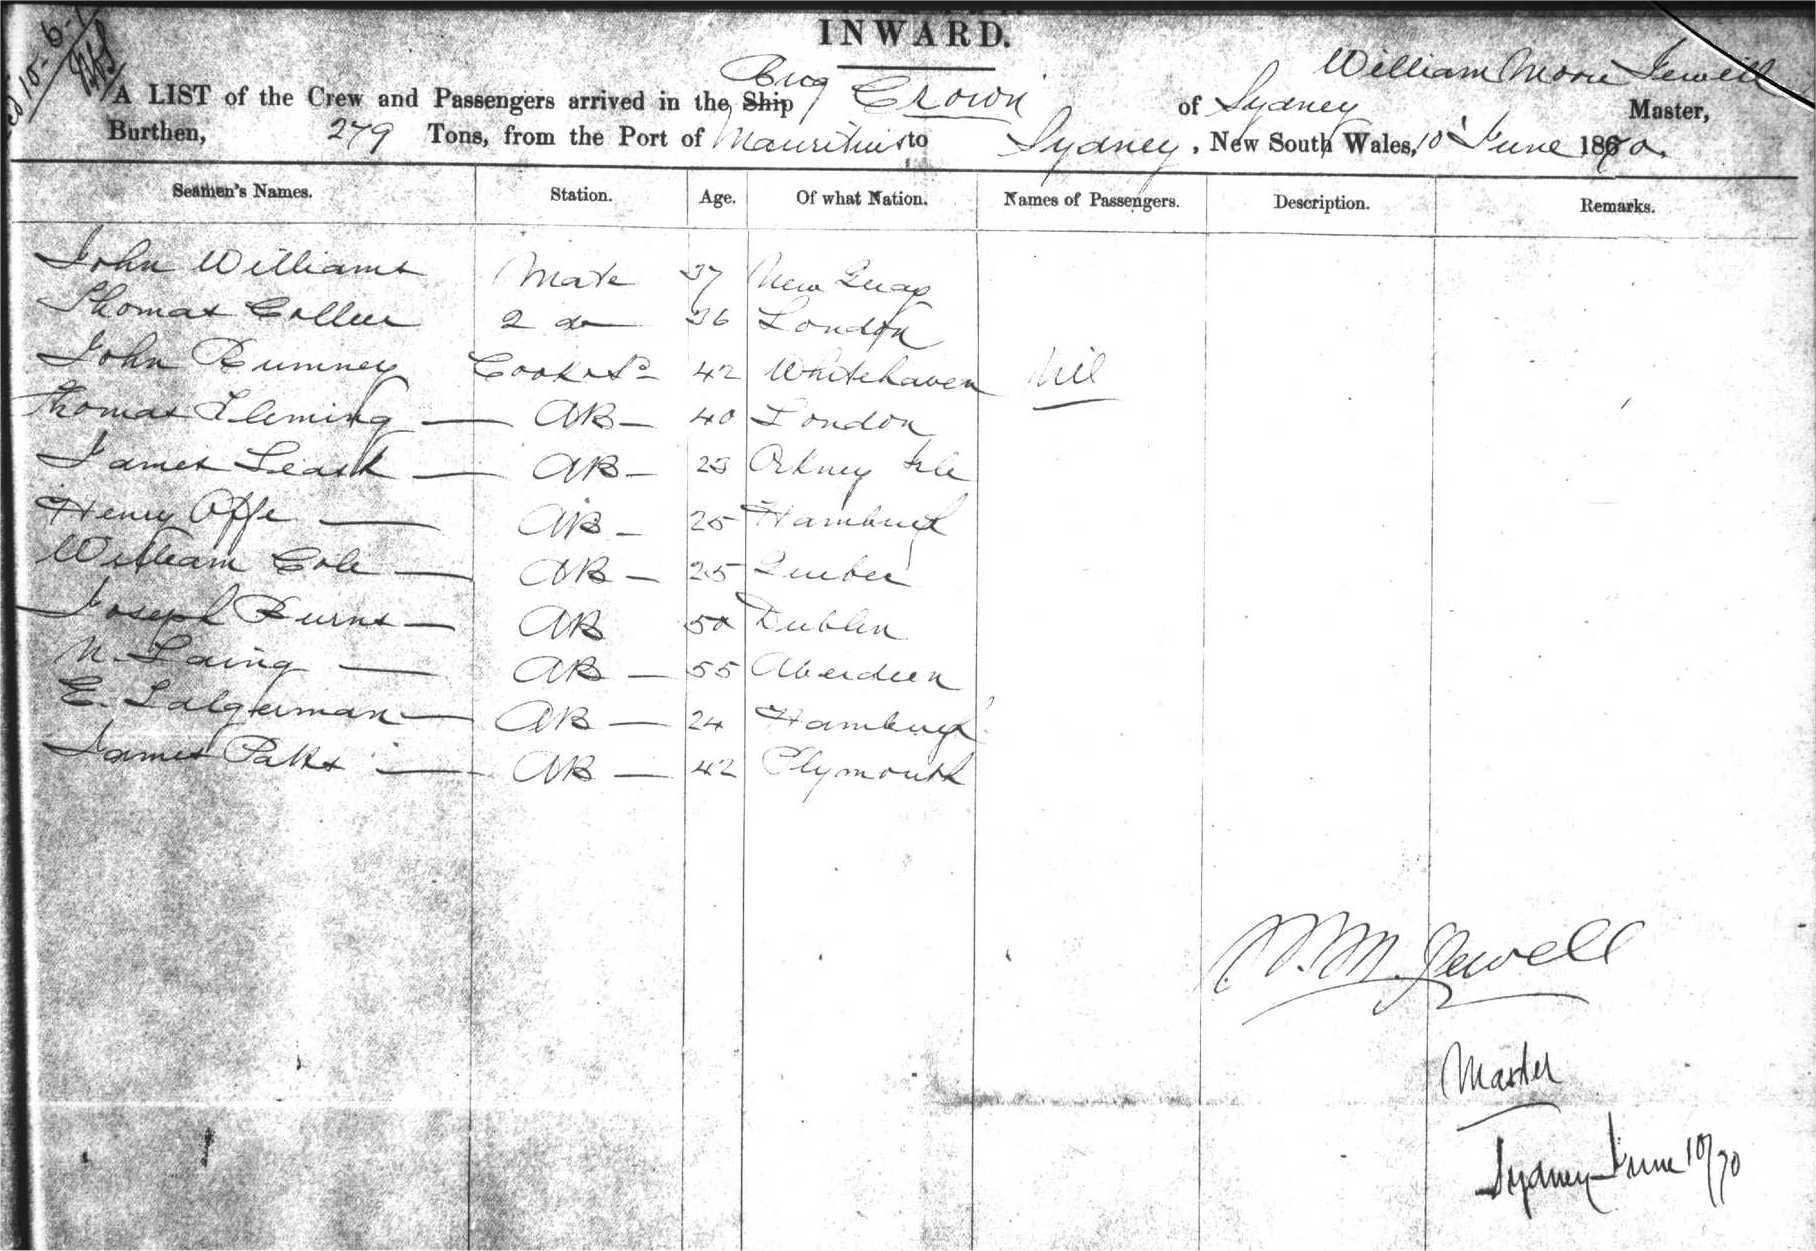 INWARD.
William Moore Jewell
Brig
A LIST of the Crew and Passengers arrived in the Ship Crown of Sydney Master,
Burthen, 279 Tons, from the Port of Mauritius to Sydney, New South Wales, 10 June 1870.
Seamen's Names. Station. Age. Of what Nation. Names of Passengers. Description. Remarks.
John Williams Mate 37 New Quay
Thomas Collier 2 do 36 London
John Rumney Cook & Sd 42 Whitehaven Nil
Thomas Fleming AB 40 London
James Leask AB 23 Orkney Isle
Henry Offe AB 25 Hamburgh
William Cole AB 25 Quebec
Joseph Burns AB 50 Dublin
N. Laing AB 55 Aberdeen
E. Lalgerman AB 24 Hamburgh
James Patts AB 42 Plymouth
W. M. Jewell
Master
Sydney June 10/70